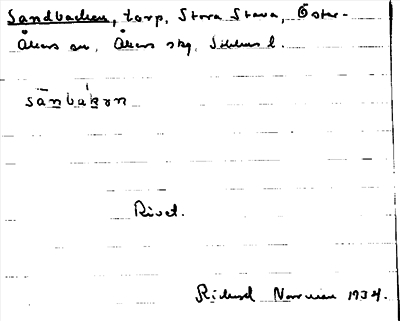 Sandbacken, torp, Stora Stava, Öster-
Åkers sn, Åkers skg, Sthlms l.
sànbakən
Rivet.
Rickard 1934.